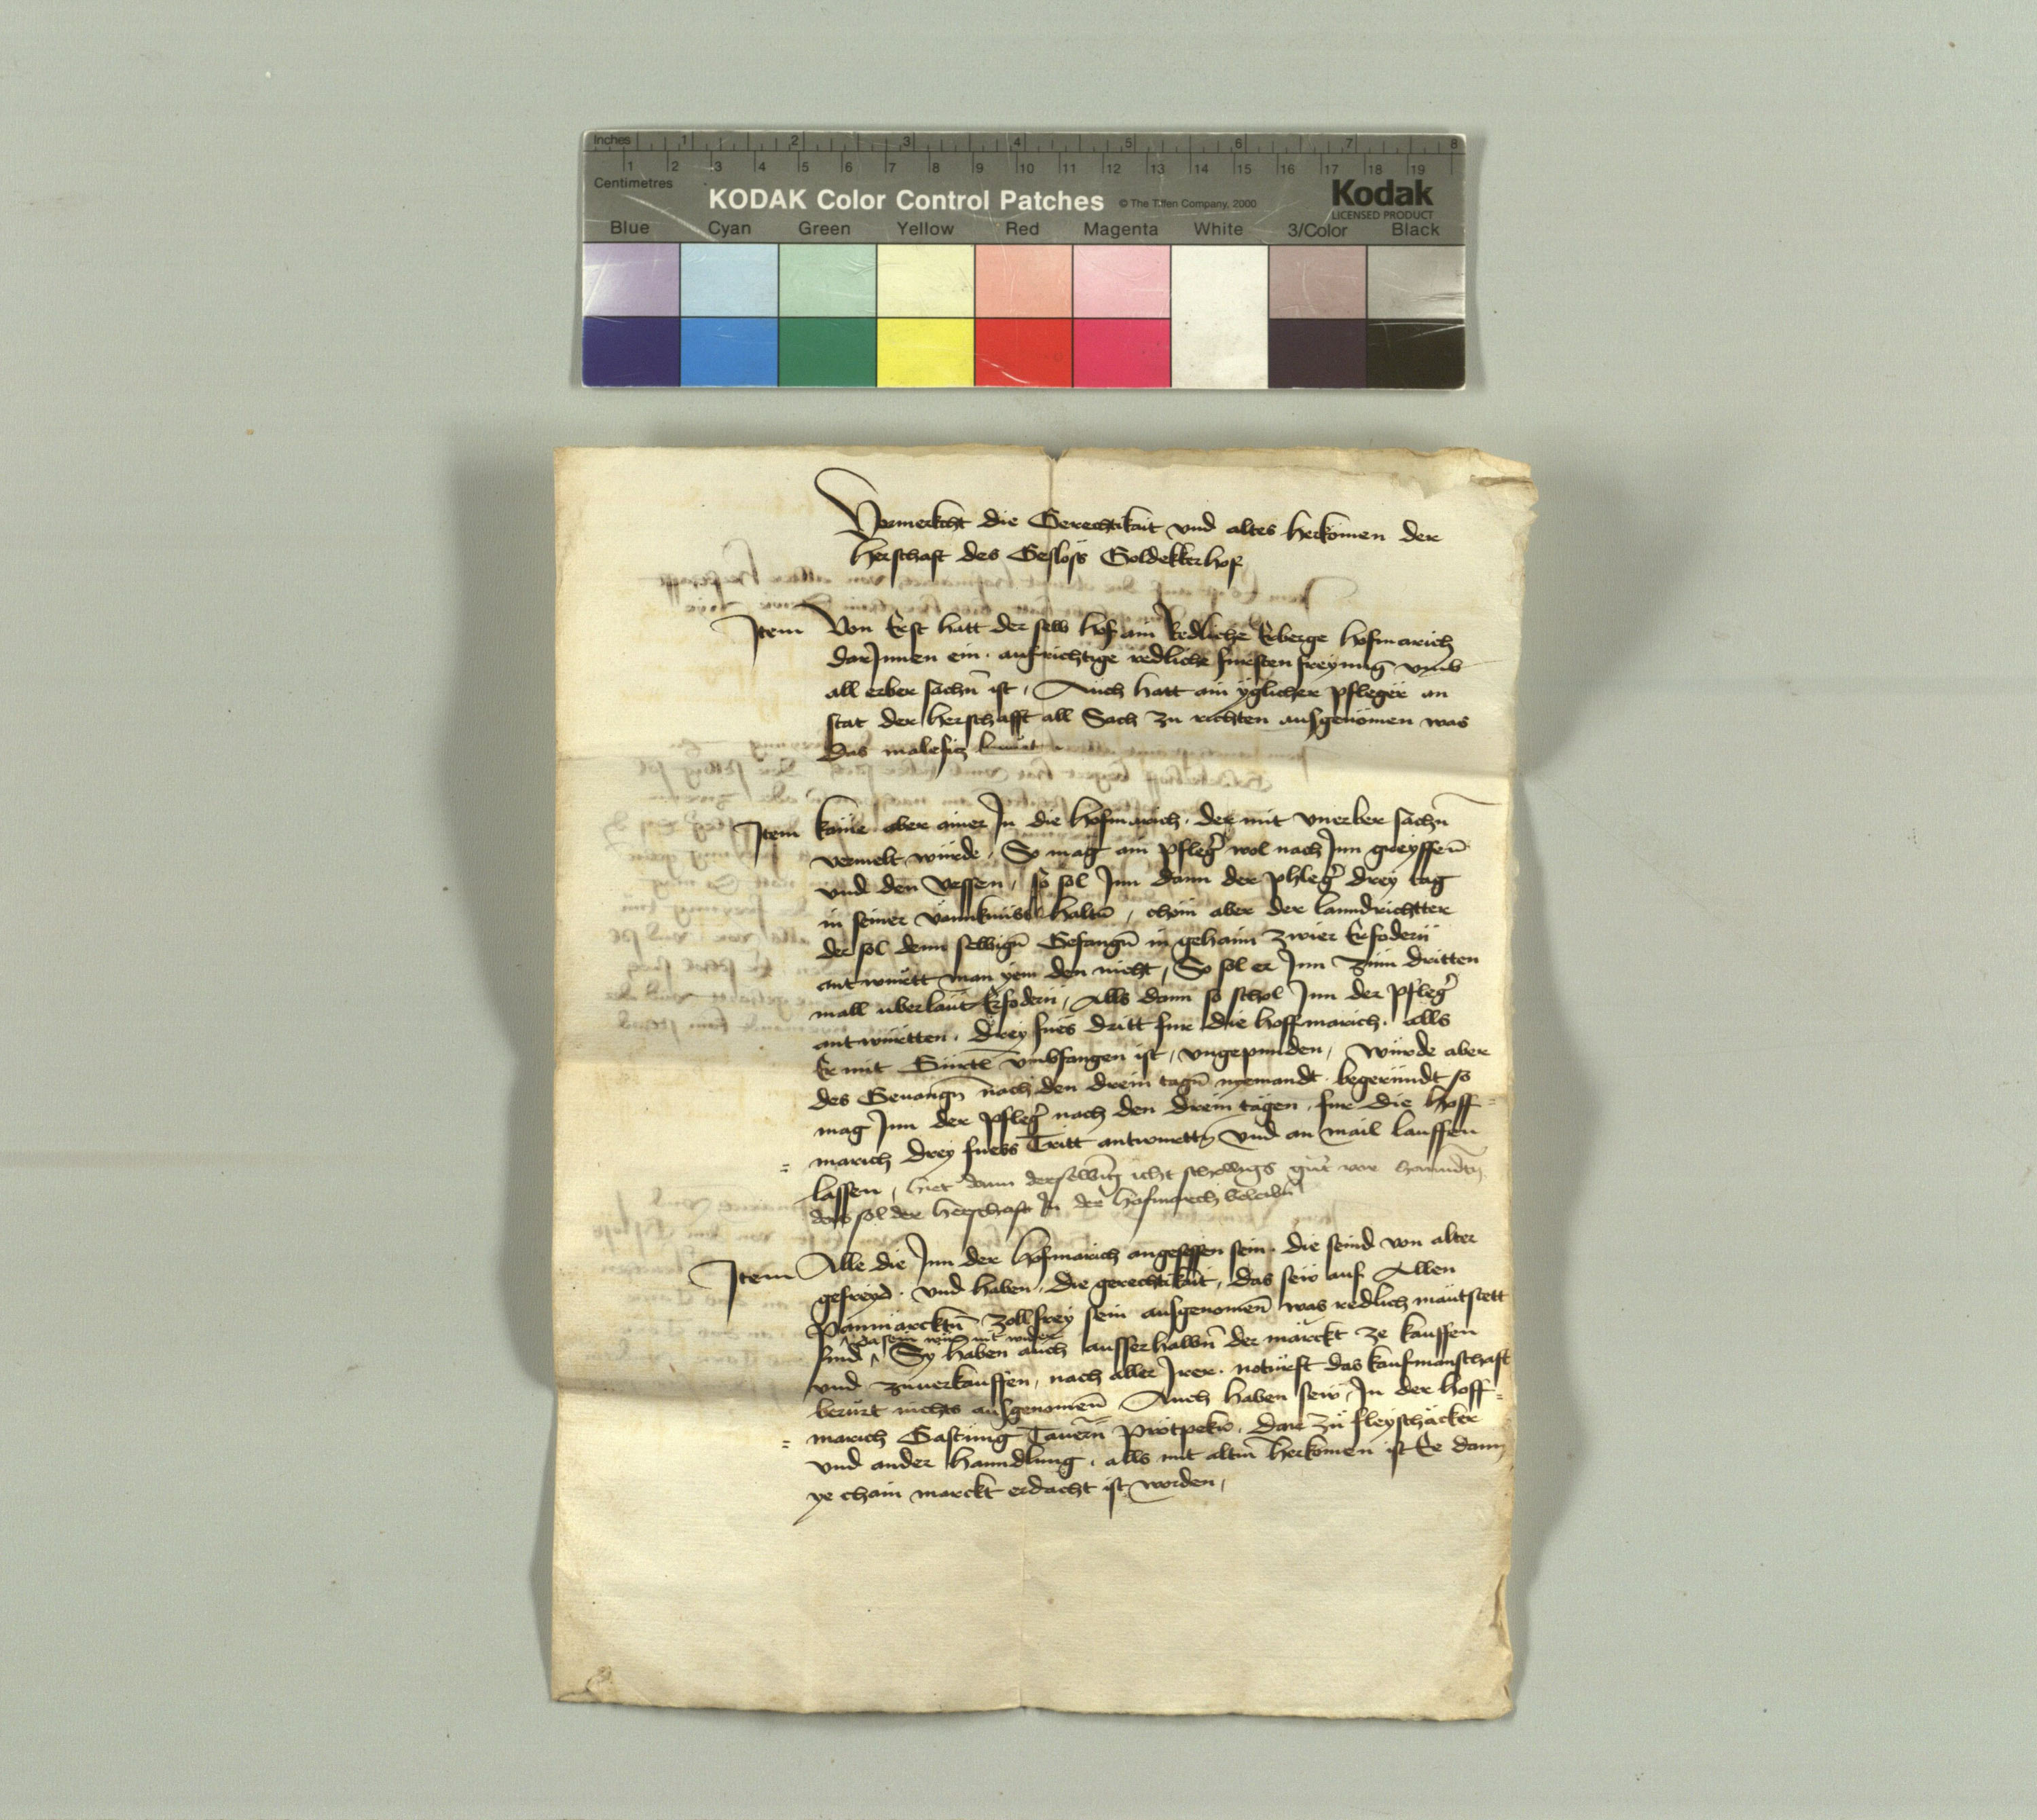 Inches 1 2 3 4 5 6 7 8
1 2 3 4 5 6 7 8 9 10 11 12 13 14 15 16 17 18 19
Centimetres
KODAK Color Control Patches © The Tiffen Company, 2000 Kodak
LICENSED PRODUCT
Blue Cyan Green Yellow Red Magenta White 3/Color Black
Vermerkcht die Gerechtikait vnd altes herkomen der
herschaft des Gesloss Goldekkerhof
Item Von Erst hatt der selb hof ain Redliche Erberge hofmarich
darJnnen ein aufrichtige redliche fursten freyung vmb
all erber sachn ist, Auch hatt ain yglicher pfleger an
stat der herschafft all Sach zu richten ausgenomen was
das malefitz
Item käme aber ainer In die hofmarich der mit vnerber sachn
vermelt würde, So mag ain pfleger wol nach Jnn greyffen
vnd den vessen, so sol Jnn dann der phleger drey tag
in seiner vännknüss haltn, chöm aber der lanndrichtter
der sol denn selbign Gefangn in gehaim zwier Erfodern
antwurtt man ym den nicht, So sol er Jnn zum dritten
mall uberlaut Erfodern, Alls dann so schol Jnn der pfleger
antwurtten drey fues dritt fur die hoffmarich alls
Er mit Gürtl vmbfangen ist, vngepunden, würde aber
des Geuangn nach den drein tagn nyemandt begerundt so
mag Jnn der pfleger nach den drein tägen fur die hoff=
=marich drey fuess Tritt antwurttn vnd an mail lauffen
lassen, hiet dann derselbing icht guet vor
das sol der herschaft In der hofmarch beleibn
Item Alle die Jnn der hofmarich angesessen sein die seind von alter
gefreyd vnd haben die gerechtikait, das sew auf Allen
Panmärcktn zollfrey sein ausgenomen was redlich mautstett
sind, Sy haben auch ausserhalbn der märckt ze kauffen
vnd zuuerkauffen, nach aller Jrer noturft das kaufmanschaft
berürt nichts ausgenomen Auch haben sew, In der hoff=
=marich Gastung Tauern protpekn, dar zu fleyschacker
vnd ander hanndlung, alls mit altm herkomen ist Ee dann
ye chain marckt erdacht ist worden,